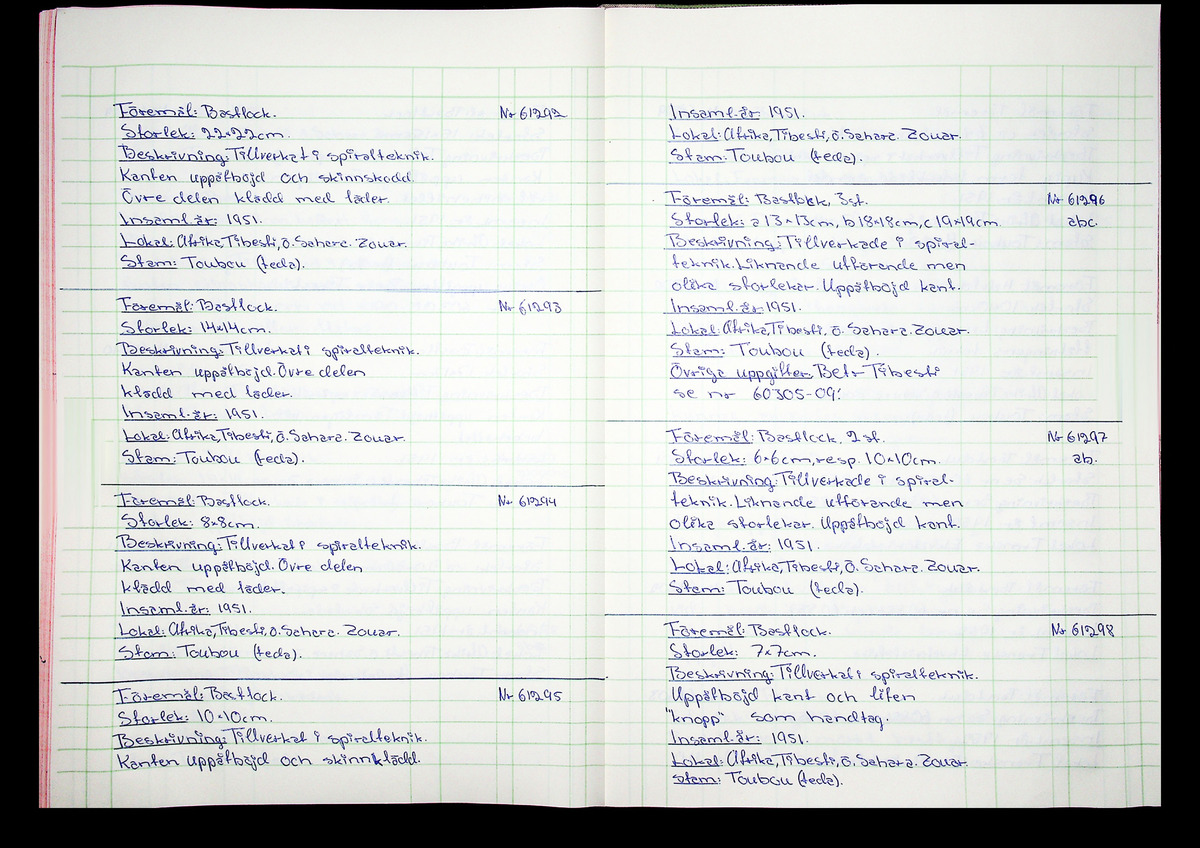 Föremål: Bastlock. Nr 61292
Storlek: 22×22cm.
Beskrivning: Tillverkat i spiralteknik.
Kanten uppåtböjd och skinnskodd.
Övre delen klädd med läder.
Insaml.år: 1951.
Lokal: Afrika, Tibesti, ö. Sahara. Zouar.
Stam: Toubou (teda).
Föremål: Bastlock. Nr 61293
Storlek: 14×14cm.
Beskrivning: Tillverkat i spiralteknik.
Kanten uppåtböjd. Övre delen
klädd med läder.
Insaml.år: 1951.
Lokal: Afrika, Tibesti, ö. Sahara. Zouar.
Stam: Toubou (teda).
Föremål: Bastlock. Nr 61294
Storlek: 8×8cm.
Beskrivning: Tillverkat i spiralteknik.
Kanten uppåtböjd. Övre delen
klädd med läder.
Insaml.år: 1951.
Lokal: Afrika, Tibesti, ö. Sahara. Zouar.
Stam: Toubou (teda).
Föremål: Bastlock. Nr 61295
Storlek: 10×10cm.
Beskrivning: Tillverkat i spiralteknik.
Kanten uppåtböjd och skinnklädd.
Insaml.år: 1951.
Lokal: Afrika, Tibesti, ö. Sahara. Zouar.
Stam: Toubou (teda).
Föremål: Bastlock, 3st. Nr 61296
Storlek: a 13×13cm, b 18×18cm, c 19×19cm. abc.
Beskrivning: Tillverkade i spiral-
teknik. Liknande utförande men
olika storlekar. Uppåtböjd kant.
Insaml.år: 1951.
Lokal: Afrika, Tibesti, ö. Sahara. Zouar.
Stam: Toubou (teda).
Övriga uppgifter: Betr Tibesti
se nr 60305-09!
Föremål: Bastlock. 2 st. Nr 61297
Storlek: 6×6cm, resp. 10×10cm. ab.
Beskrivning: Tillverkade i spiral-
teknik. Liknande utförande men
olika storlekar. Uppåtböjd kant.
Insaml.år: 1951.
Lokal: Afrika, Tibesti, ö. Sahara. Zouar.
Stam: Toubou (teda).
Föremål: Bastlock. Nr 61298
Storlek: 7×7cm.
Beskrivning: Tillverkat i spiralteknik.
Uppåtböjd kant och liten
"knopp" som handtag.
Insaml.år: 1951.
Lokal: Afrika, Tibesti, ö. Sahara. Zouar.
Stam: Toubou (teda).